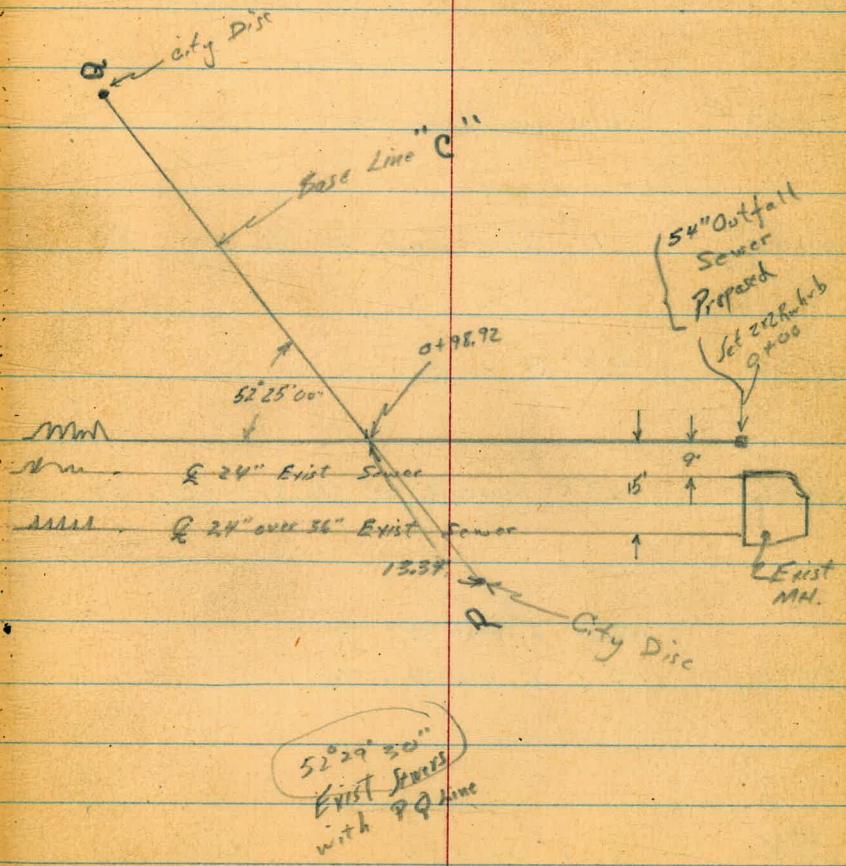 Q
City Disc
Base Line "C"
54" Outfall
Sewer
Proposed
Set 2x2 R.w. hub
0+00
0+98.92
52°25'00"
9'
15'
℄ 24" Exist Sewer
℄ 24" over 36" Exist Sewer
Exist
MH.
P
City Disc
52°29'30"
Exist Sewers
with PQ Line